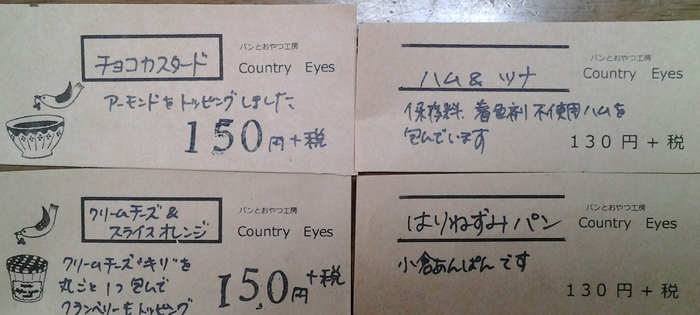 チョコカスタード
パンとおやつ工房
Country Eyes
アーモンドをトッピングしました
150円+税
ハム & ツナ
パンとおやつ工房
Country Eyes
保存料、着色剤不使用ハムを
包んでいます
130円+税
クリームチーズ &
スライスオレンジ
パンとおやつ工房
Country Eyes
クリームチーズ“キリ”を
丸ごと1つ包んで
クランベリーをトッピング
150円+税
はりねずみパン
パンとおやつ工房
Country Eyes
小倉あんぱんです
130円+税